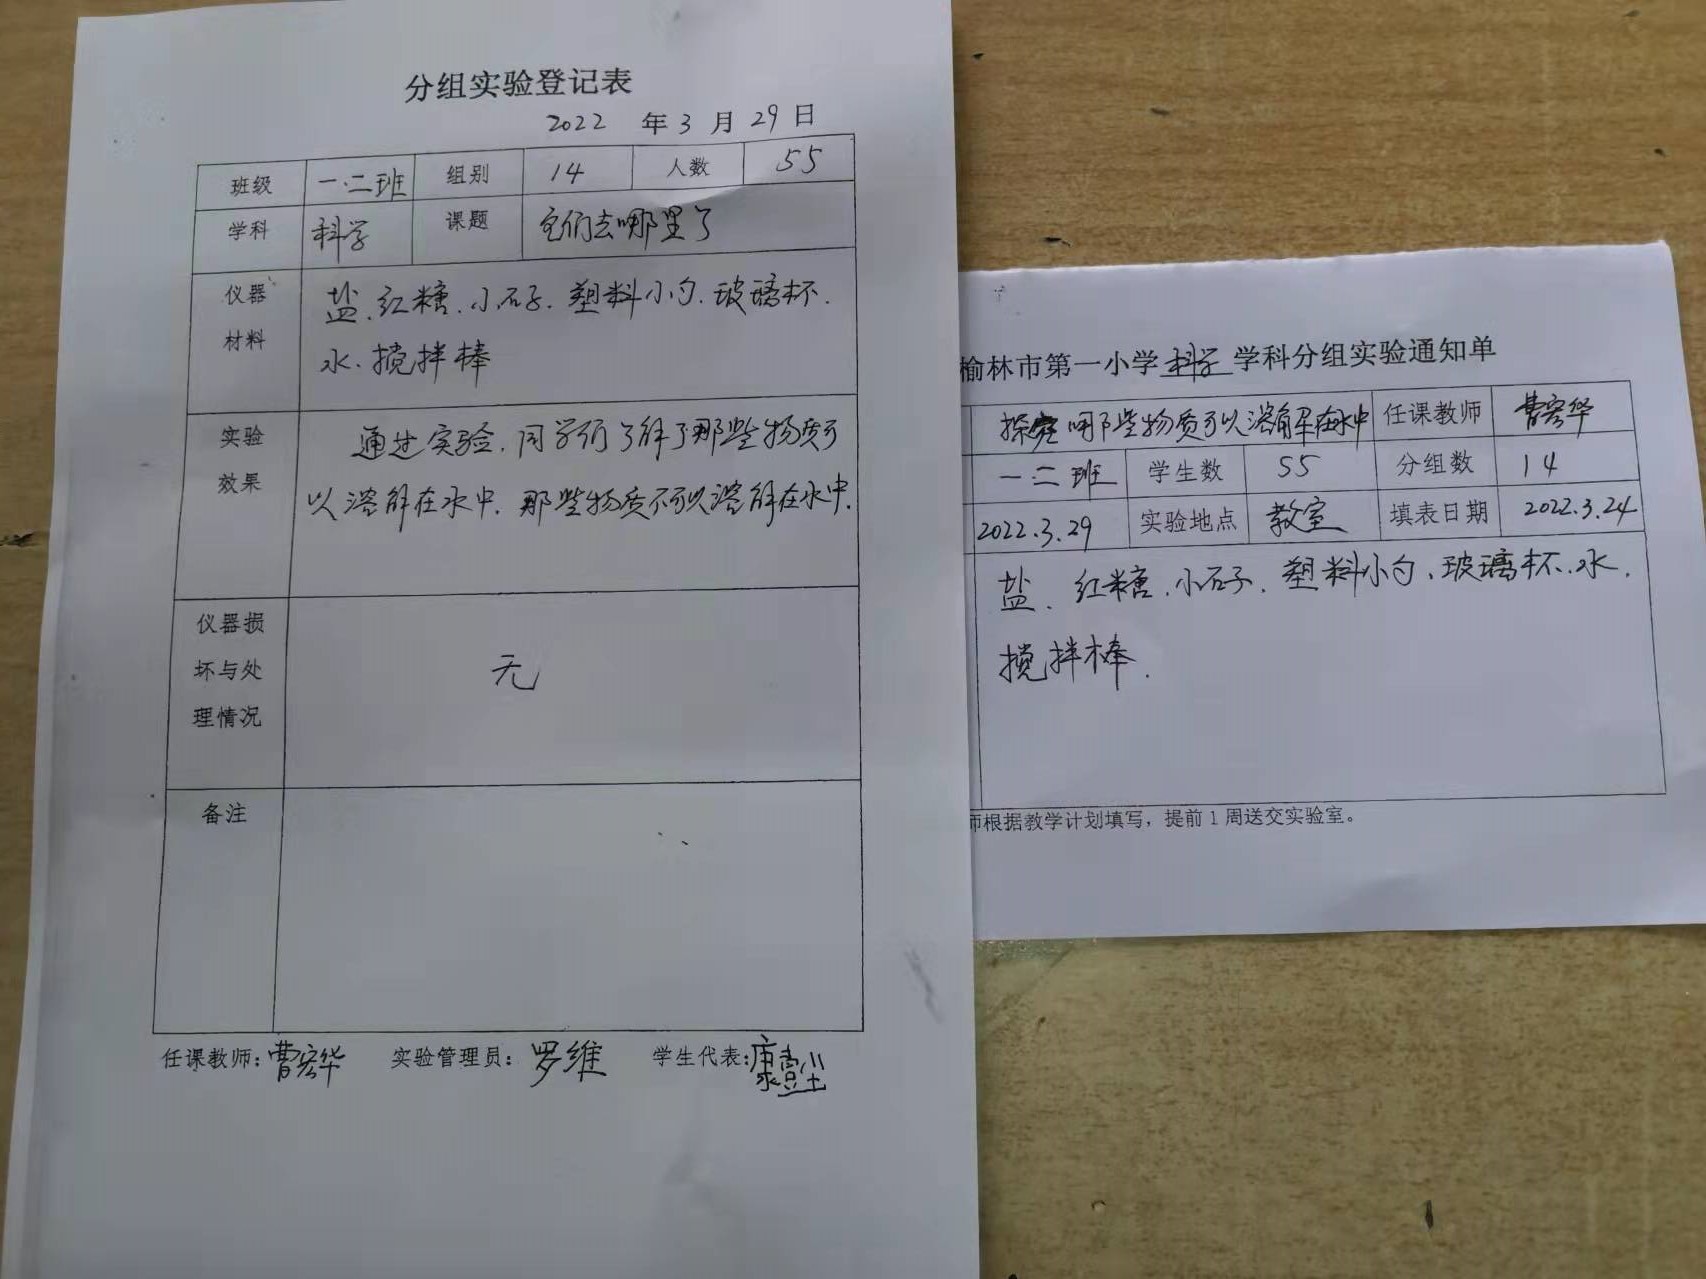 分组实验登记表
2022 年 3 月 29 日
班级 一.二班 组别 14 人数 55
学科 科学 课题 它们去哪里了
仪器
材料
盐.红糖.小石子.塑料小勺.玻璃杯.
水.搅拌棒
实验
效果
通过实验.同学们了解了那些物质可
以溶解在水中.那些物质不可以溶解在水中.
仪器损
坏与处
理情况
无
备注
任课教师:曹宏华 实验管理员:罗维 学生代表:康
榆林市第一小学科学学科分组实验通知单
探究哪些物质可以溶解在水中 任课教师 曹宏华
一.二班 学生数 55 分组数 14
2022.3.29 实验地点 教室 填表日期 2022.3.24
盐.红糖.小石子.塑料小勺、玻璃杯.水.
搅拌棒.
师根据教学计划填写，提前1周送交实验室。